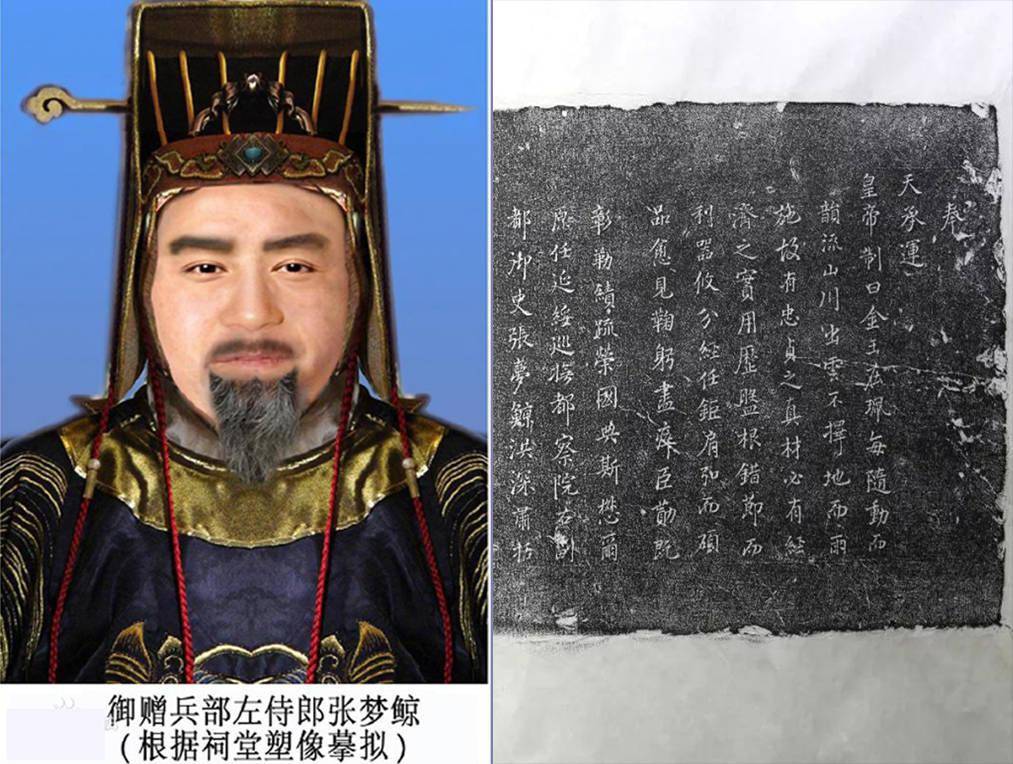 御赠兵部左侍郎张梦鲸
(根据祠堂塑像摹拟)
奉
天承運
皇帝制曰金玉在珮每隨動而
韻流山川出雲不擇地而雨
施故有忠貞之真材必有經
濟之實用歷盤根錯節而
利器攸分經任鉅肩弘而碩
品愈見鞠躬盡瘁臣勛既
彰勒績疏榮國典斯懋爾
原任延綏巡撫都察院右副
都御史張夢鯨洪深